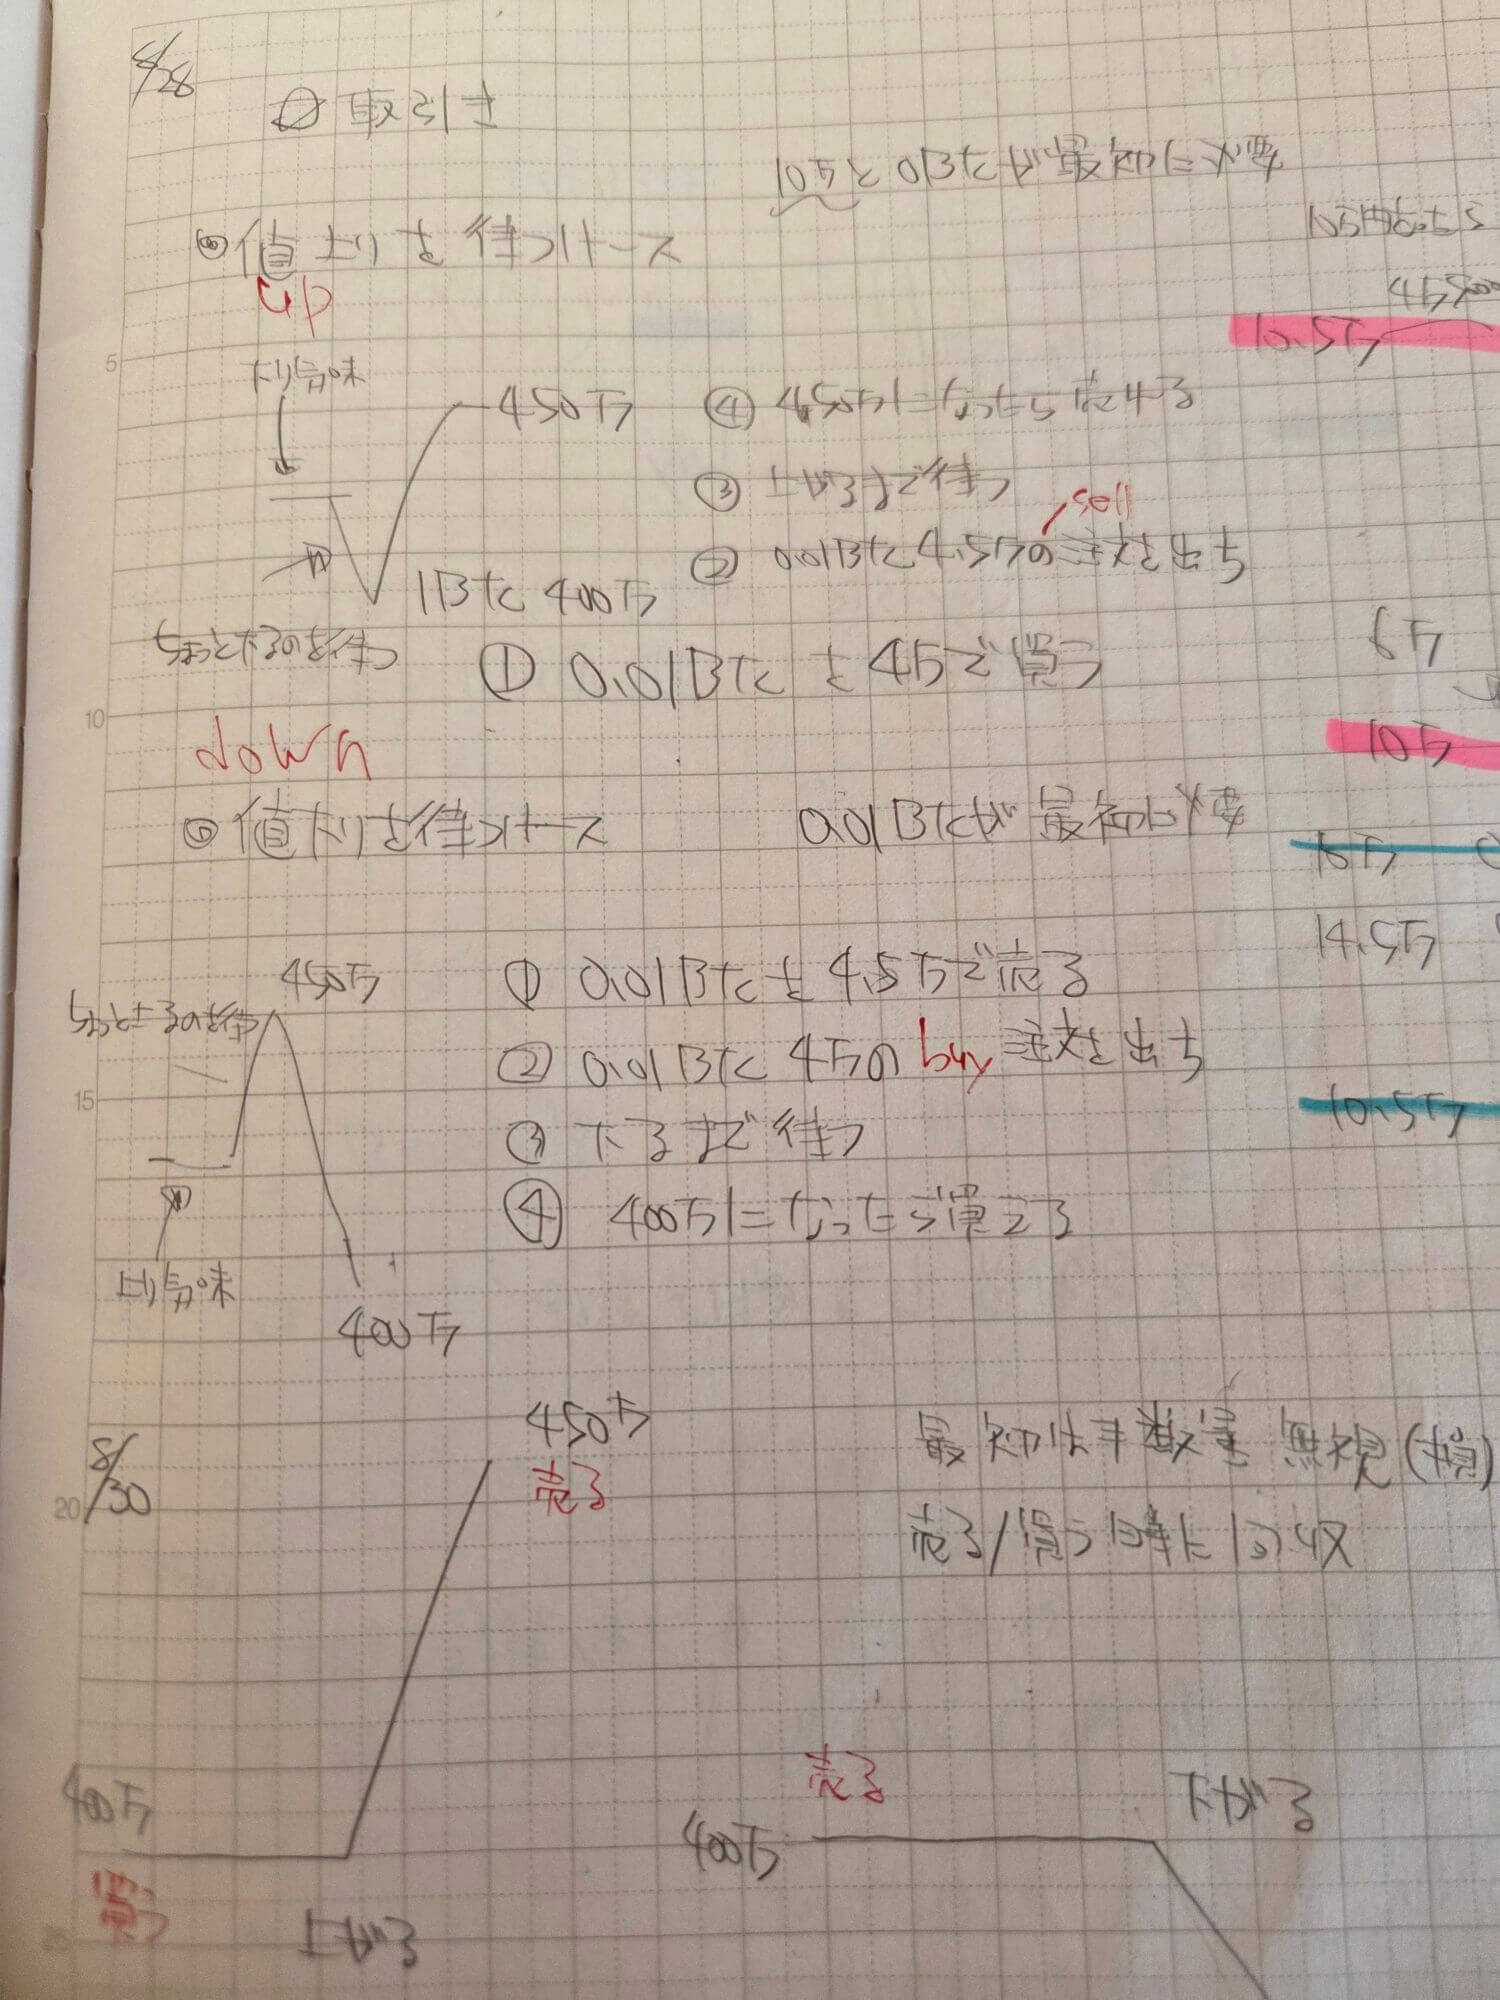 8/28
取引き
10万と0BTCが最初に必要
◎値上りを待つケース
up
10.5万
下り気味
450万
④ 450万になったら売れる
③ 上がるまで待つ
sell
② 0.01BTC 4.5万の注文を出す
1BTC 400万
ちょっと下るのを待つ
① 0.01BTCを4万で買う
6万
10万
down
◎値下りを待つケース
0.01BTCが最初に必要
15万
14.5万
450万
ちょっと上るのを待つ
① 0.01BTCを4.5万で売る
② 0.01BTC 4万のbuy注文を出す
10.5万
③ 下るまで待つ
④ 400万になったら買える
上り気味
400万
8/30
450万
売る
最初は手数量無視(損)
売る/買う時に回収
400万
買う
上がる
売る
400万
下がる
5
10
15
20